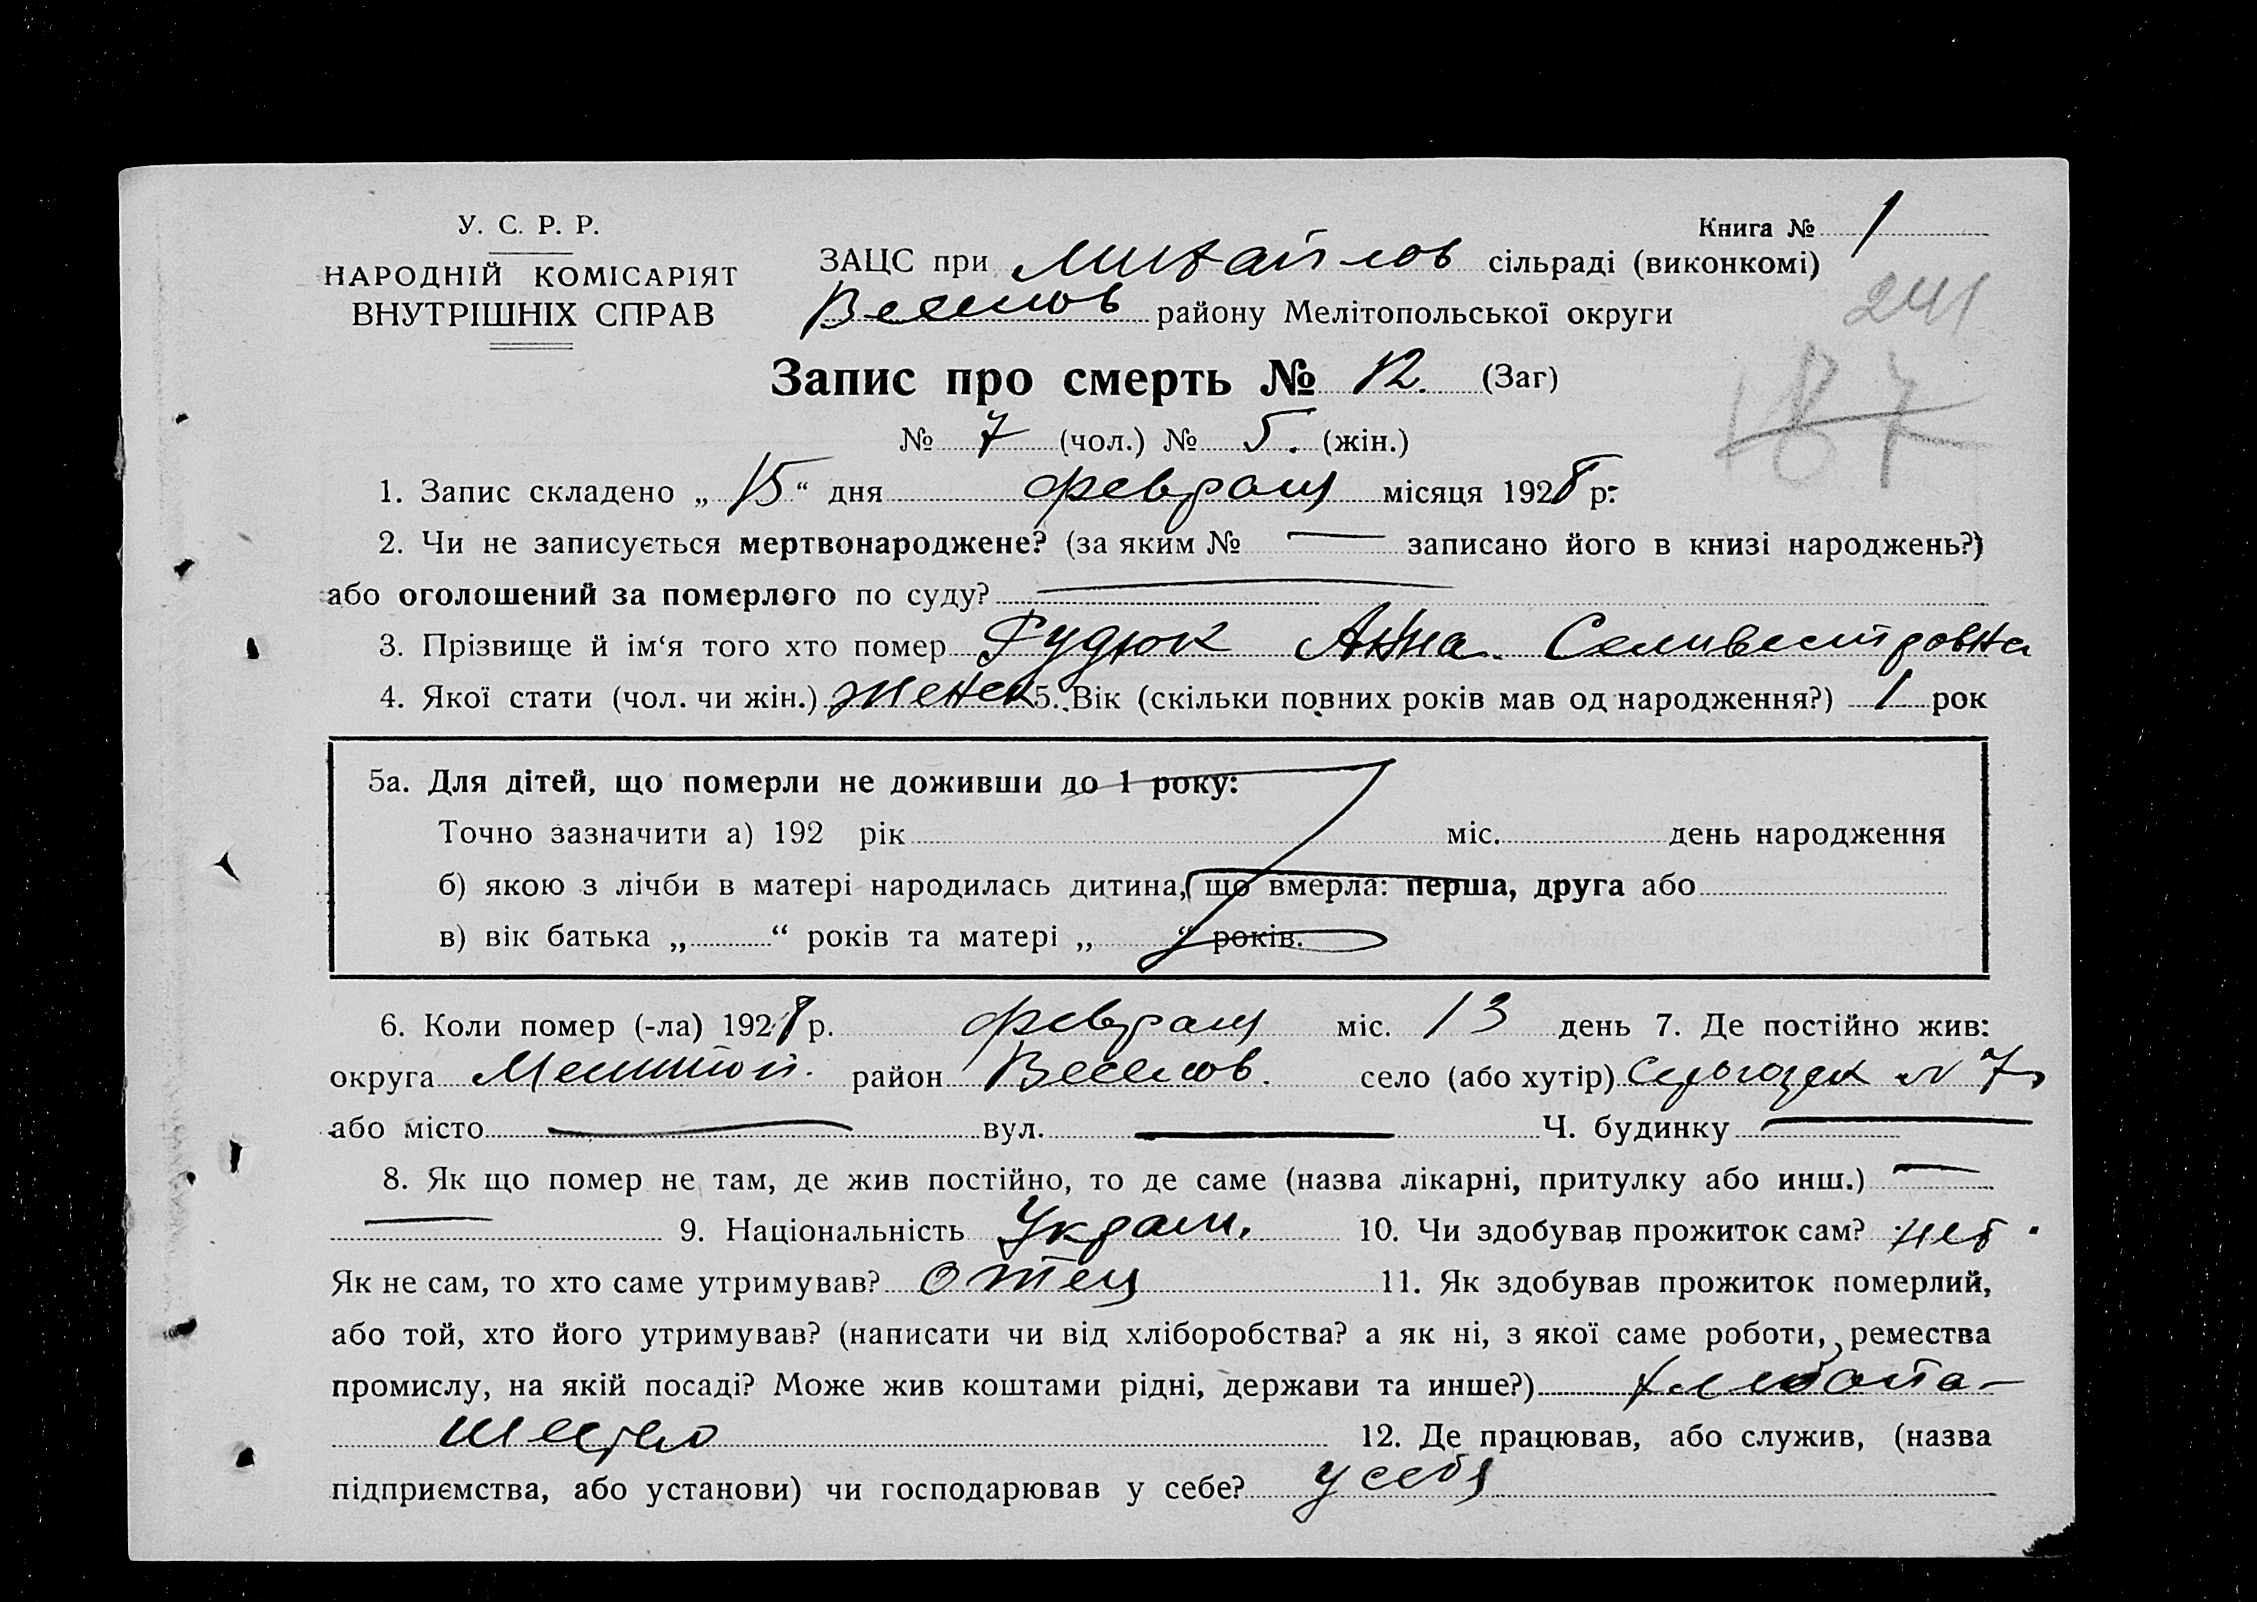 У. С. Р. Р.
НАРОДНІЙ КОМІСАРІЯТ
ВНУТРІШНІХ СПРАВ
Книга № 1
ЗАЦС при Михайлов сільраді (виконкомі)
241
Веселов району Мелітопольської округи
Запис про смерть № 12. (Заг)
187
№ 7 (чол.) № 5. (жін.)
1. Запис складено „15“ дня февраля місяця 1928 р.
2. Чи не записується мертвонароджене? (за яким № — записано його в книзі народжень?)
або оголошений за померлого по суду? —
3. Прізвище й ім‘я того хто помер Гудюк Анна Селивестровна
4. Якої стати (чол. чи жін.) женск 5. Вік (скільки повних років мав од народження?) 1 рок
5а. Для дітей, що померли не доживши до 1 року:
Точно зазначити а) 192 рік міс. день народження
б) якою з лічби в матері народилась дитина, що вмерла: перша, друга або
в) вік батька „ “ років та матері „ “ років.
6. Коли помер (-ла) 1928 р. февраля міс. 13 день 7. Де постійно жив:
округа Мелитоп. район Веселов. село (або хутір) № 7
або місто — вул. — Ч. будинку —
8. Як що помер не там, де жив постійно, то де саме (назва лікарні, притулку або инш.) —
— 9. Національність Украин. 10. Чи здобував прожиток сам? нет.
Як не сам, то хто саме утримував? отец 11. Як здобував прожиток померлий,
або той, хто його утримував? (написати чи від хліборобства? а як ні, з якої саме роботи, ремества
промислу, на якій посаді? Може жив коштами рідні, держави та инше?) хлебопа-
шество 12. Де працював, або служив, (назва
підприємства, або установи) чи господарював у себе? у себя